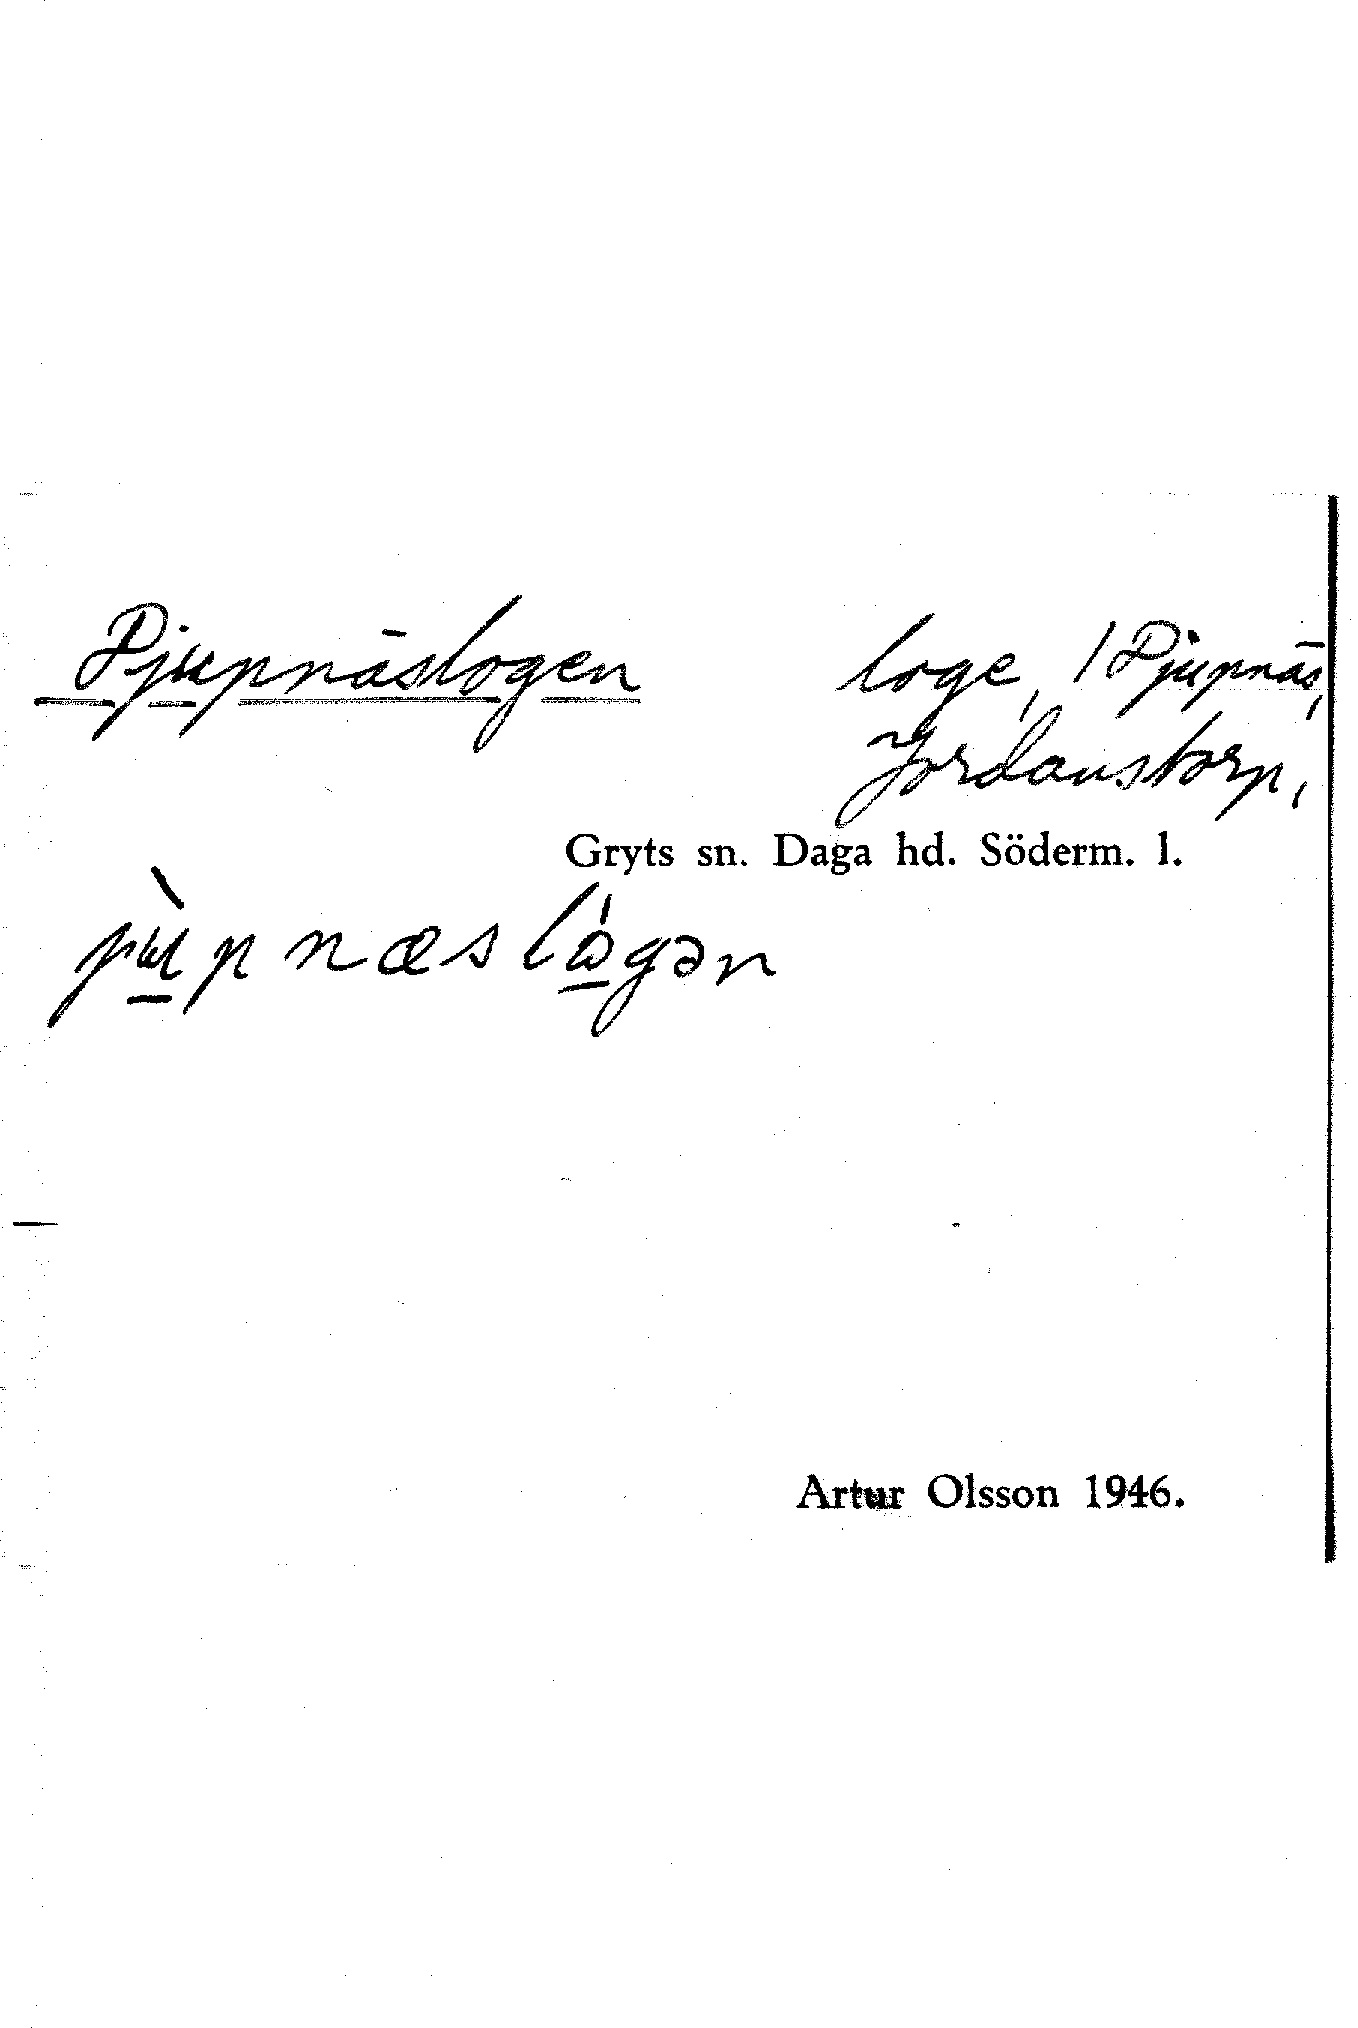 Djupnäslogen loge, / Djupnäs,
Jordanstorp,
Gryts sn. Daga hd. Söderm. l.
jùpnæslógən
Artur Olsson 1946.